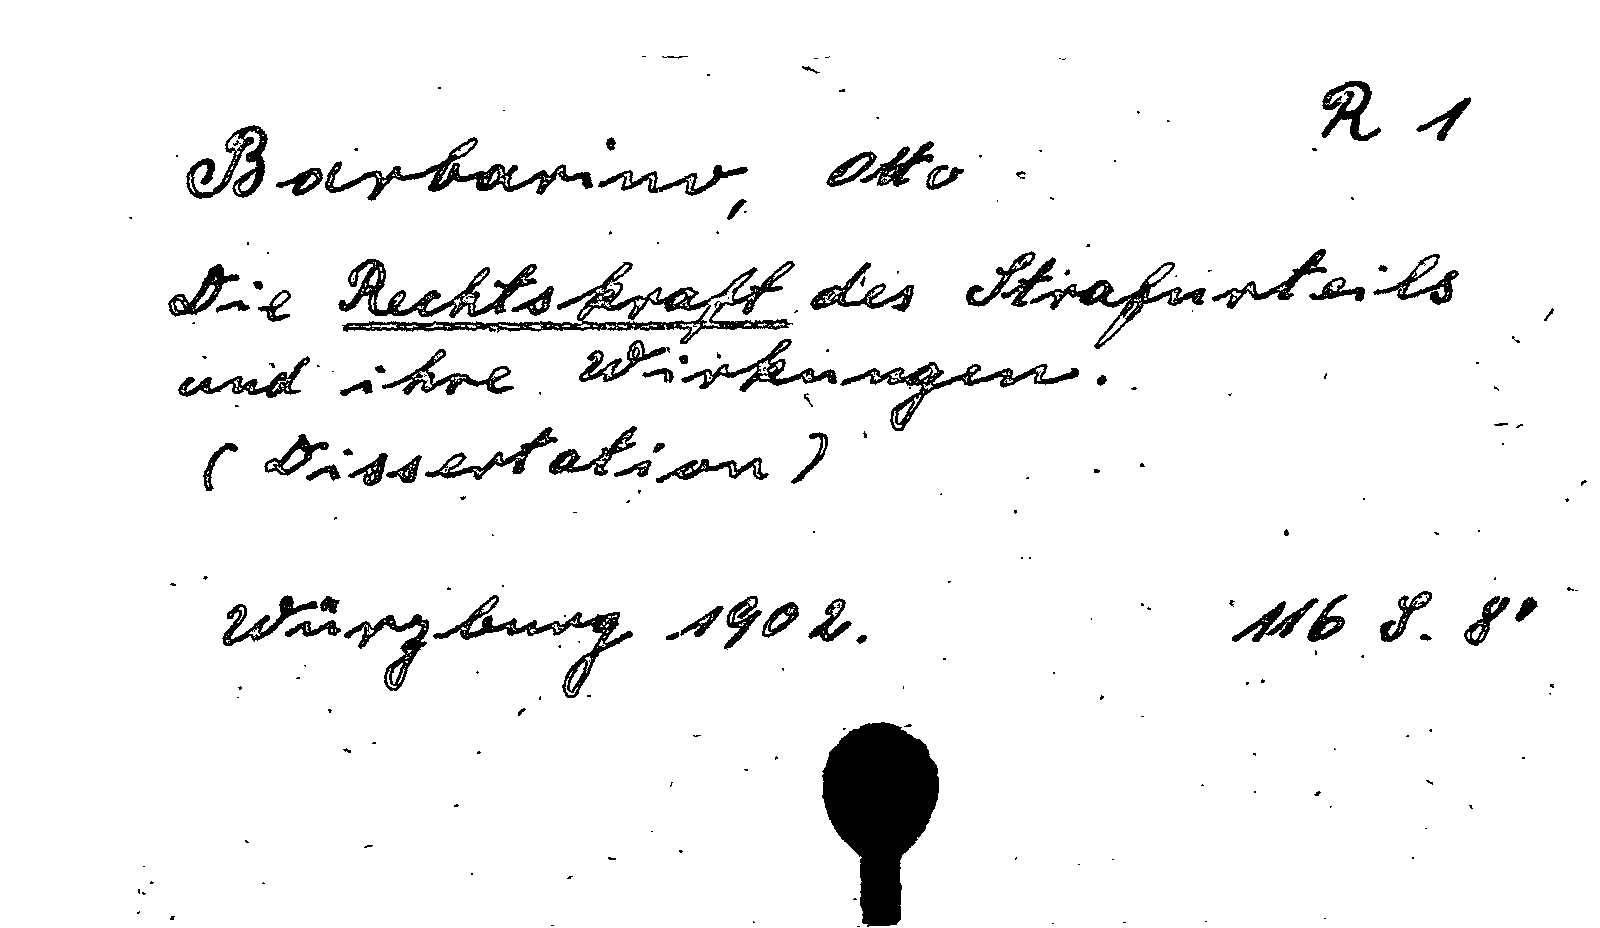 R 1
Barbarino, Otto
Die Rechtskraft des Strafurteils
und ihre Wirkungen.
(Dissertation)
Würzburg 1902. 116 S. 8°